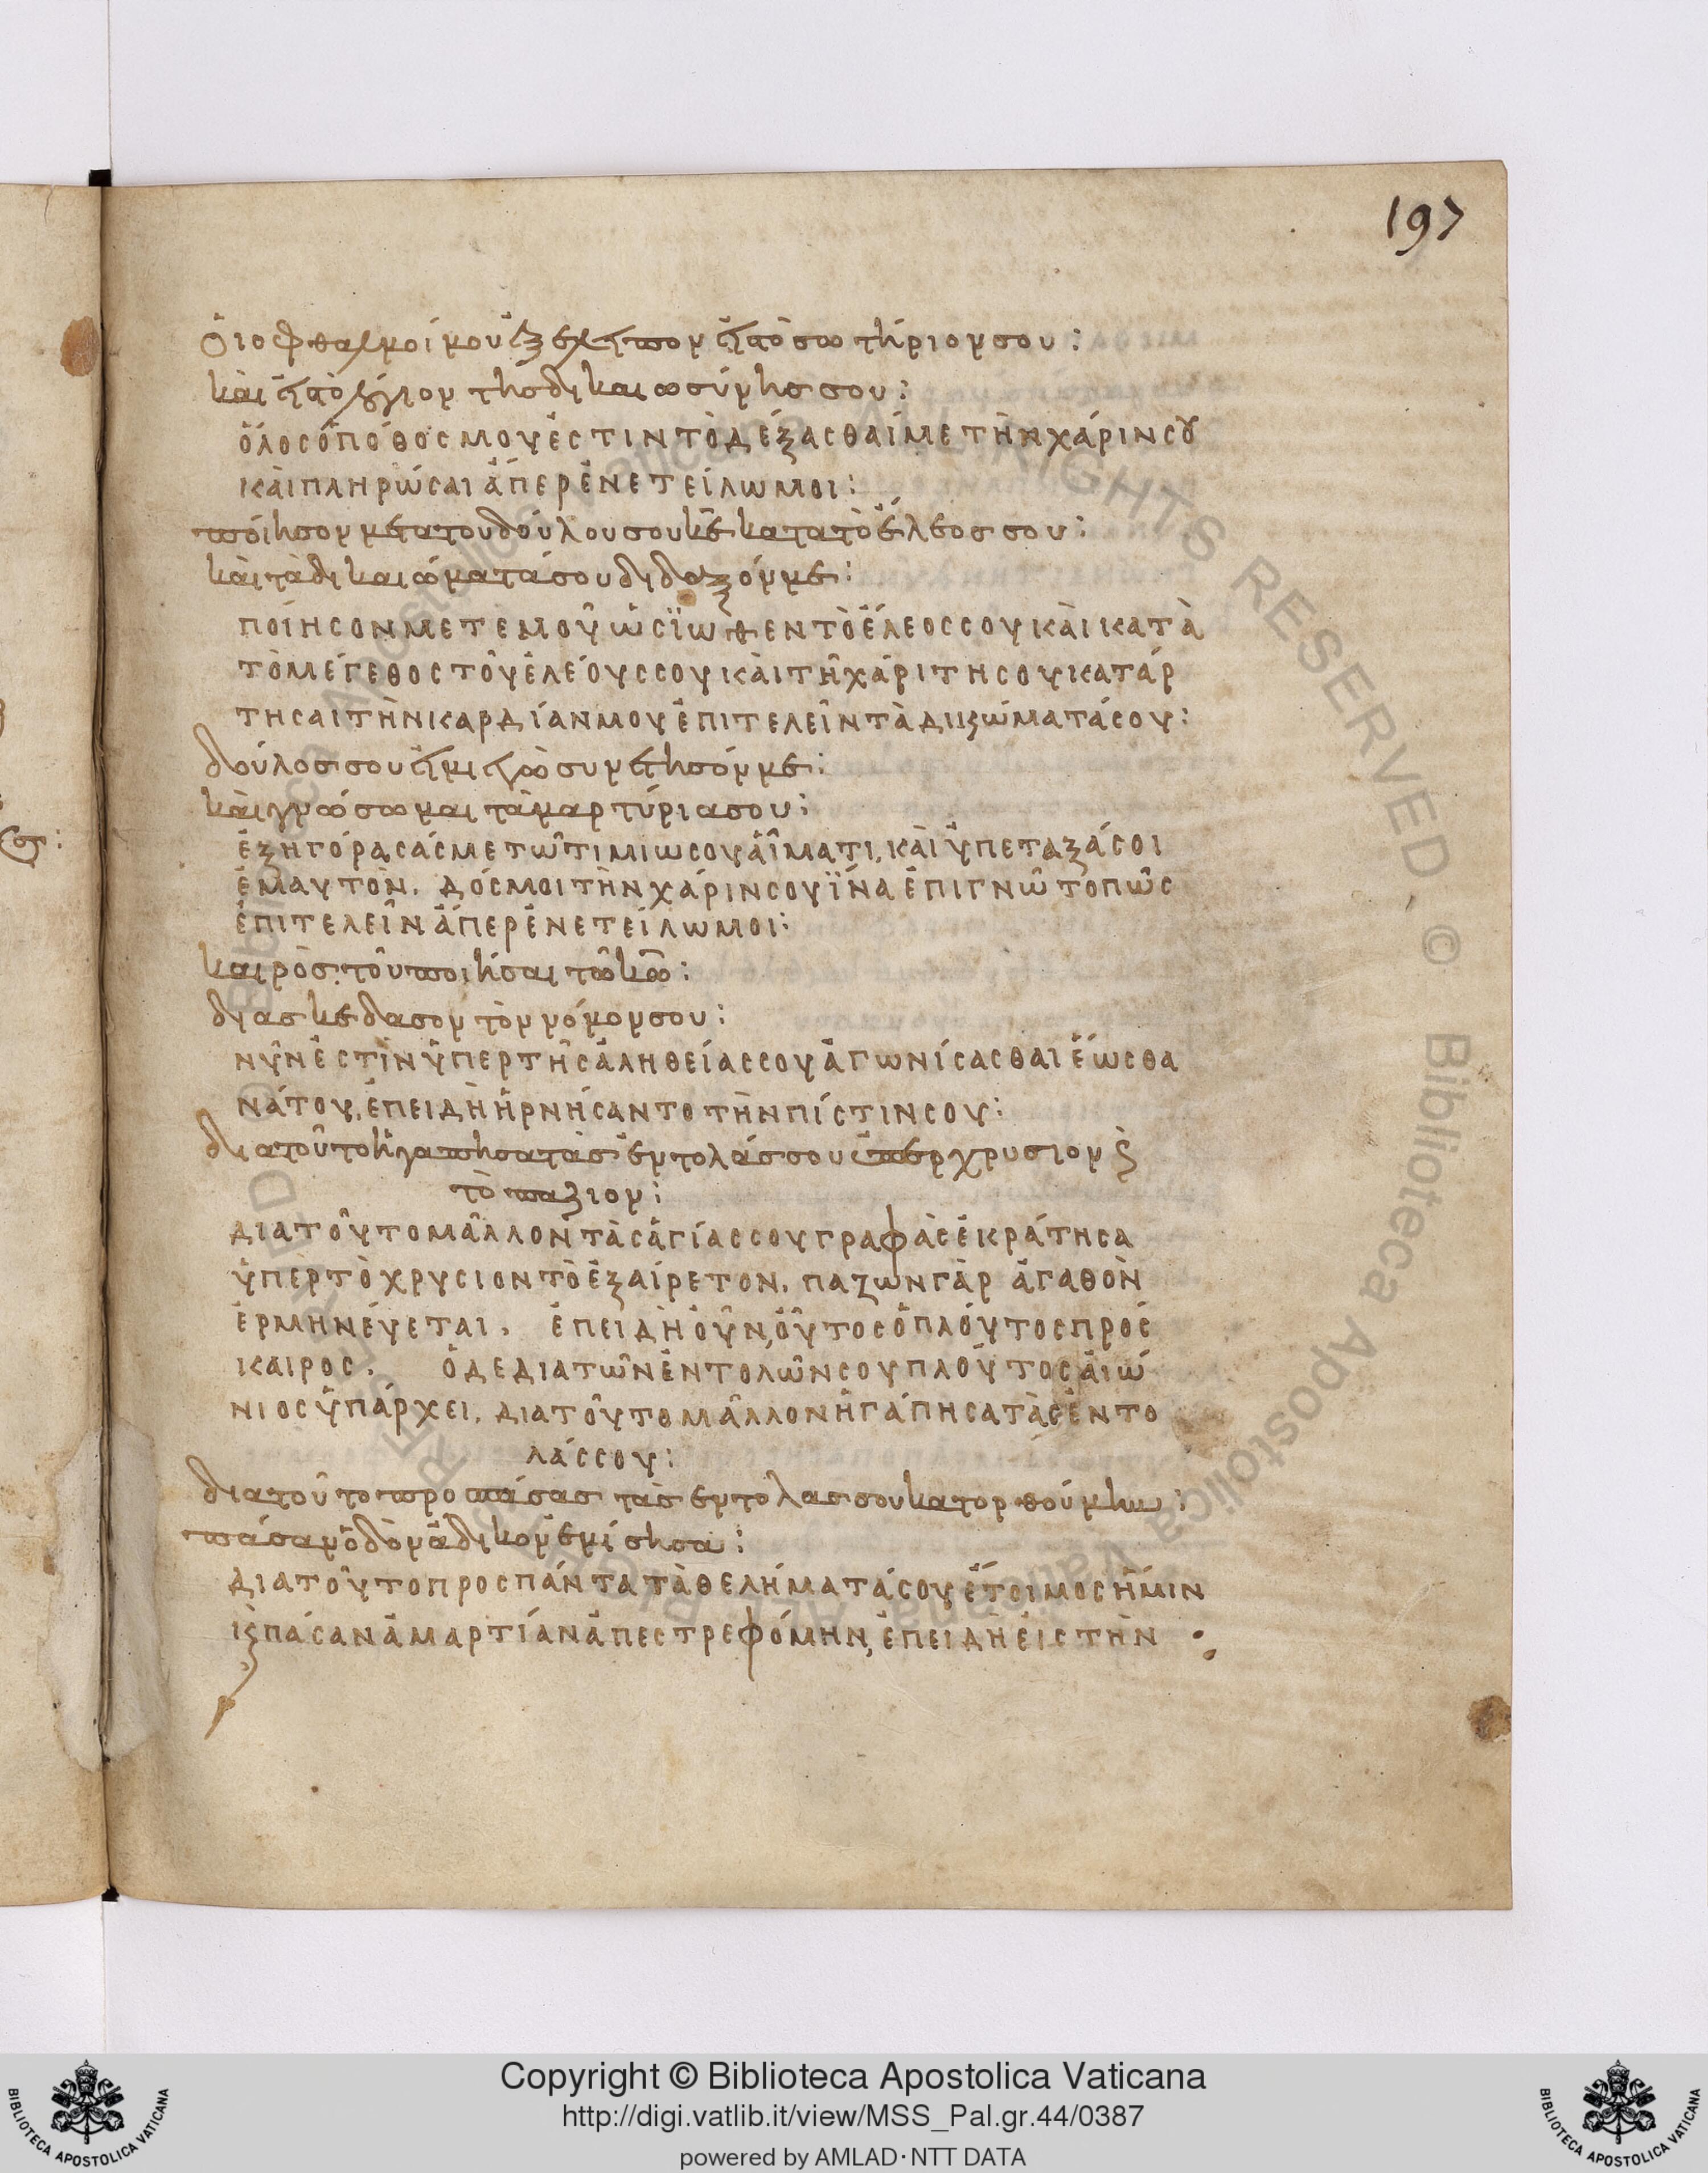 197
ὅι ὀφθαλμοί μου ἐξέλειπον εἰς τὸ σωτήριον σου:
καὶ εἰς τὸ λόγιον τῆς δικαιωσύνης σου:
ὅλος ὁ πόθος μου ἐστιν τὸ δέξασθαί με τὴν χάριν σου
καὶ πληρώσαι ἅπερ ἐνετείλω μοι:
ποίησον μετα του δούλου σου κε κατα τὸ ἔλεος σου:
καὶ τὰ δικαιώματά σου διδαξόν με:
ποίησον μετ εμοῦ ὡς ἰωηφ εν τὸ ἔλεος σου καὶ κατὰ
τὸ μέγεθος τοῦ ἐλέους σου καὶ τῆ χάριτη σου κατάρ
τησαι τὴν καρδίαν μου ἐπιτελεῖν τὰ δικϗώματά σου:
δούλος σου εἰμι ἐγὼ συνετησόν με:
καὶ γνώσωμαι τὰ μαρτύρια σου:
ἐξηγόρασάς με τῶ τιμιω σου αἵματι, καὶ ὑπεταξά σοι
ἐμαυτὸν. δός μοι τὴν χάριν σου ἵνα ἐπιγνῶ το πῶς
ἐπιτελεῖν ἅπερ ἐνετείλω μοι:
καιρὸς τοῦ ποιῆσαι τῶ κω:
διασκεδασον τὸν νόμον σου:
νῦν ἐστὶν ὑπερ τῆς ἀληθείας σου ἀγωνίσασθαι ἕως θα
νάτου, ἐπειδὴ ἠρνήσαντο τὴν πίστιν σου:
δια τοῦτο ἠγαπησα τὰς ἐντολάς σου ὑπερ χρυσιον ϗ
τὸ παζιον:
δια τοῦτο μᾶλλον τὰς ἁγίας σου γραφὰς ἐκράτησα
ὑπὲρ τὸ χρυσιον τὸ ἐξαίρετον. παζων γὰρ ἀγαθὸν
ἑρμηνέυεται. ἐπειδὴ οὖν, οὗτος ὁ πλοῦτος πρόσ
καιρος. ὁ δε δια τῶν ἐντολῶν σου πλοῦτος αἰώ
νιος ὑπάρχει. δια τοῦτο μᾶλλον ἠγάπησα τὰς ἐντο
λάς σου:
δια τοῦτο προ πάσας τὰς εντολας σου κατορθούμην:
πάσαν ὁδὸν ἄδικον ἐμίσησα:
δια τοῦτο προς πάντα τὰ θελήματά σου ἕτοιμος ἤμιν
ϗ πάσαν ἁμαρτίαν ἀπεστρεφόμην, ἐπειδὴ εἰς τὴν
Copyright © Biblioteca Apostolica Vaticana
http://digi.vatlib.it/view/MSS_Pal.gr.44/0387
powered by AMLAD·NTT DATA